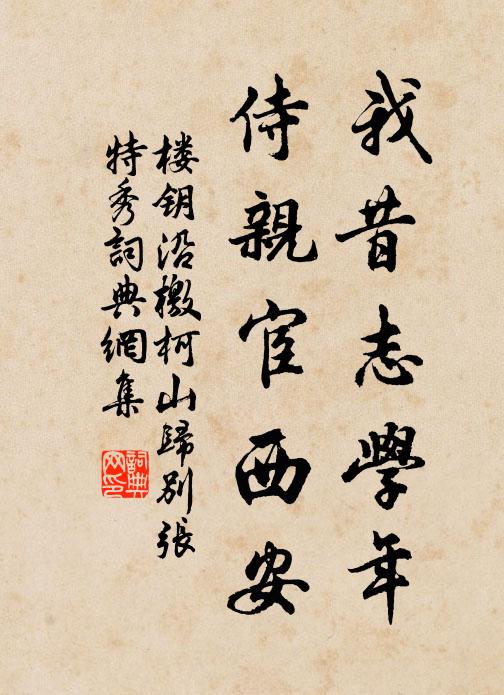 我昔志學年
侍親宦西安
楼钥沿檄柯山歸別張
特秀詞典網集
詞典
网印